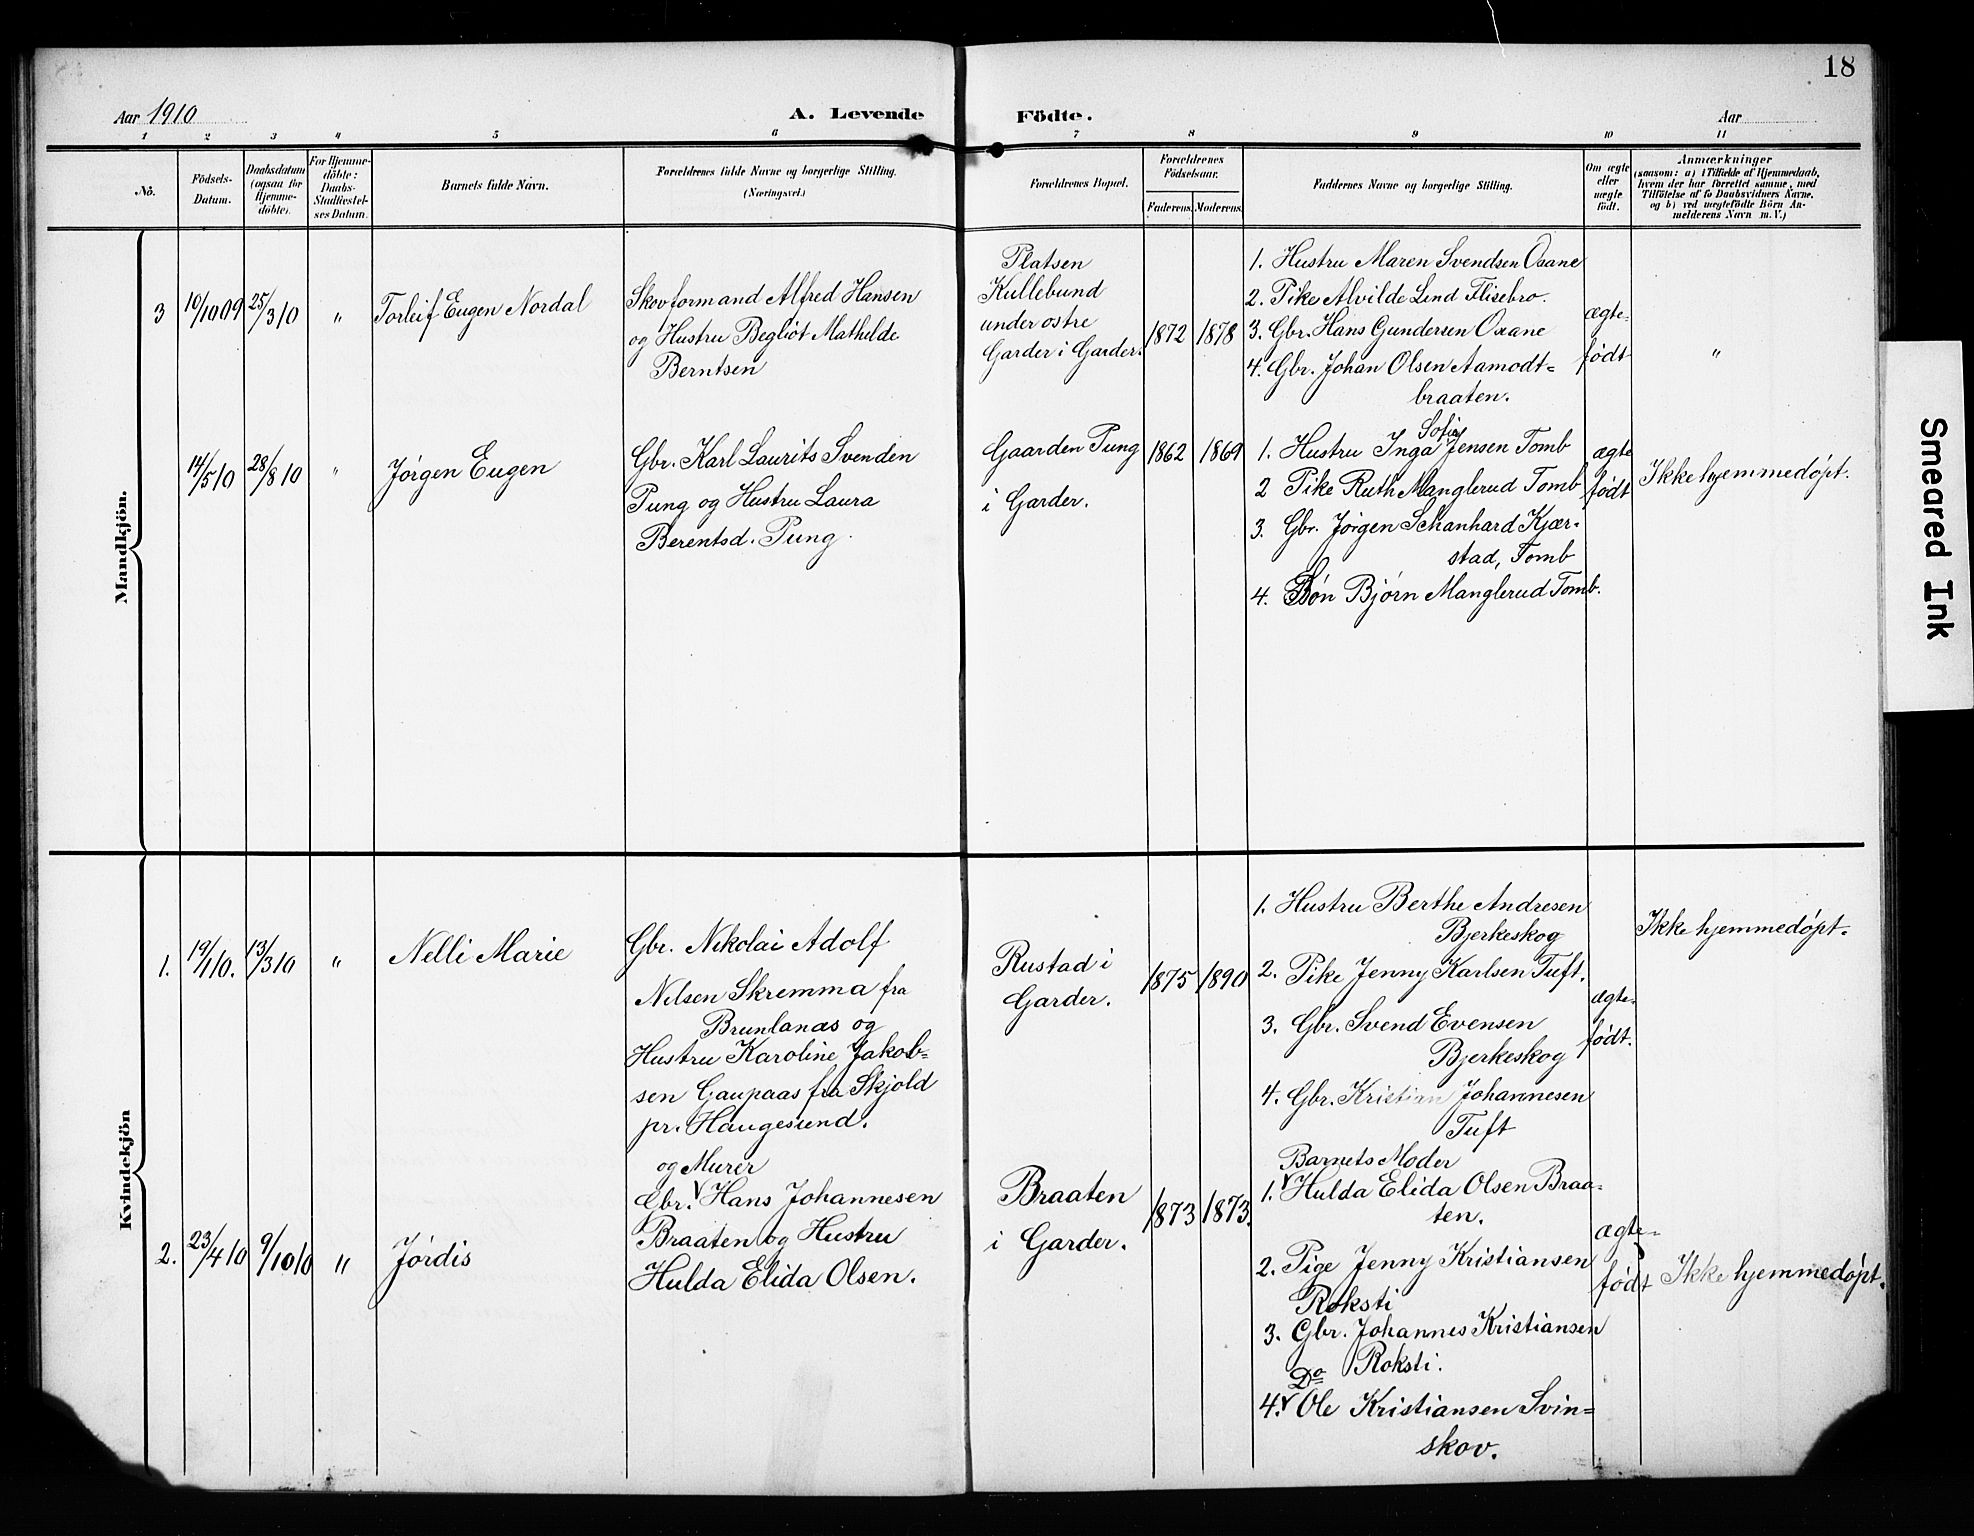 18
Aar 1910 A. Levende Födte. Aar
1 2 3 4 5 6 7 8 9 10 11
No.
Födsels-
Datum.
Daabsdatum
(ogsaa for
Hjemme-
döbte).
For Hjemme-
döbte:
Daabs-
Stadfæstel-
ses Datum.
Barnets fulde Navn.
Forældrenes fulde Navne og borgerlige Stilling.
(Næringsvei.)
Forældrenes Bopæl.
Forældrenes
Födselsaar.
Faderens. Moderens.
Faddernes Navne og borgerlige Stilling.
Om ægte
eller
uægte
födt.
Anmærkninger
(saasom: a) i Tilfælde af Hjemmedaab,
hvem der har forrettet samme, med
Tilföielse af to Daabsvidners Navne,
og b) ved uægtefödte Börn An-
melderens Navn m. V.)
Mandkjön.
3 10/10 09 25/3 10 " Torleif Eugen Nordal
Skovformand Alfred Hansen
og Hustru Begliót Mathilde
Berntsen
Platsen
Kullebund
under ostre
Garder i Garder.
1872 1878
1. Hustru Maren Svendsen Oxane
2. Pike Alvilde Lind Flisebro.
3. Gbr. Hans Gundersen Oxane
4. Gbr. Johan Olsen Aamodt=
braaten.
ægte-
födt
"
14/5 10 28/8 10 " Jörgen Eugen
Gbr. Karl Laurits Svenden
Pung og Hustru Laura
Berentsd. Pung.
Gaarden Pung
i Garder.
1862 1869
Sofie
1. Hustru Inga Jensen Tomb
2 Pike Ruth Manglerud Tomb
3. Gbr. Jörgen Schanhard Kjær-
stad, Tomb
4. Sön Björn Manglerud Tomb.
ægte
födt
Ikke hjemmedöpt.
Kvindekjön
1. 19/1 10. 13/3 10 " Nelli Marie
Gbr. Nikolai Adolf
Nilsen Skremma fra
Brunlanæs og
Hustru Karoline Jakob=
sen Gaupaas fra Skjold
pr. Haugesund.
Rustad i
Garder.
1875 1890
1. Hustru Berthe Andresen
Bjerkeskog
2. Pike Jenny Karlsen Tuft.
3. Gbr. Svend Evensen
Bjerkeskog
4. Gbr. Kristian Johannesen
Tuft
ægte-
födt.
Ikke hjemmedöpt.
2. 23/4 10 9/10 10 " Jördis
og Murer
Gbr. Hans Johannesen
Braaten og Hustru
Hulda Elida Olsen.
Braaten
i Garder.
1873 1873.
Barnets Moder
1. Hulda Elida Olsen Braa-
ten.
2. Pige Jenny Kristiansen
Roksti
3. Gbr. Johannes Kristiansen
Roksti.
Do
4. Ole Kristiansen Svin=
skov.
ægte-
födt
Ikke hjemmedöpt.
Smeared Ink